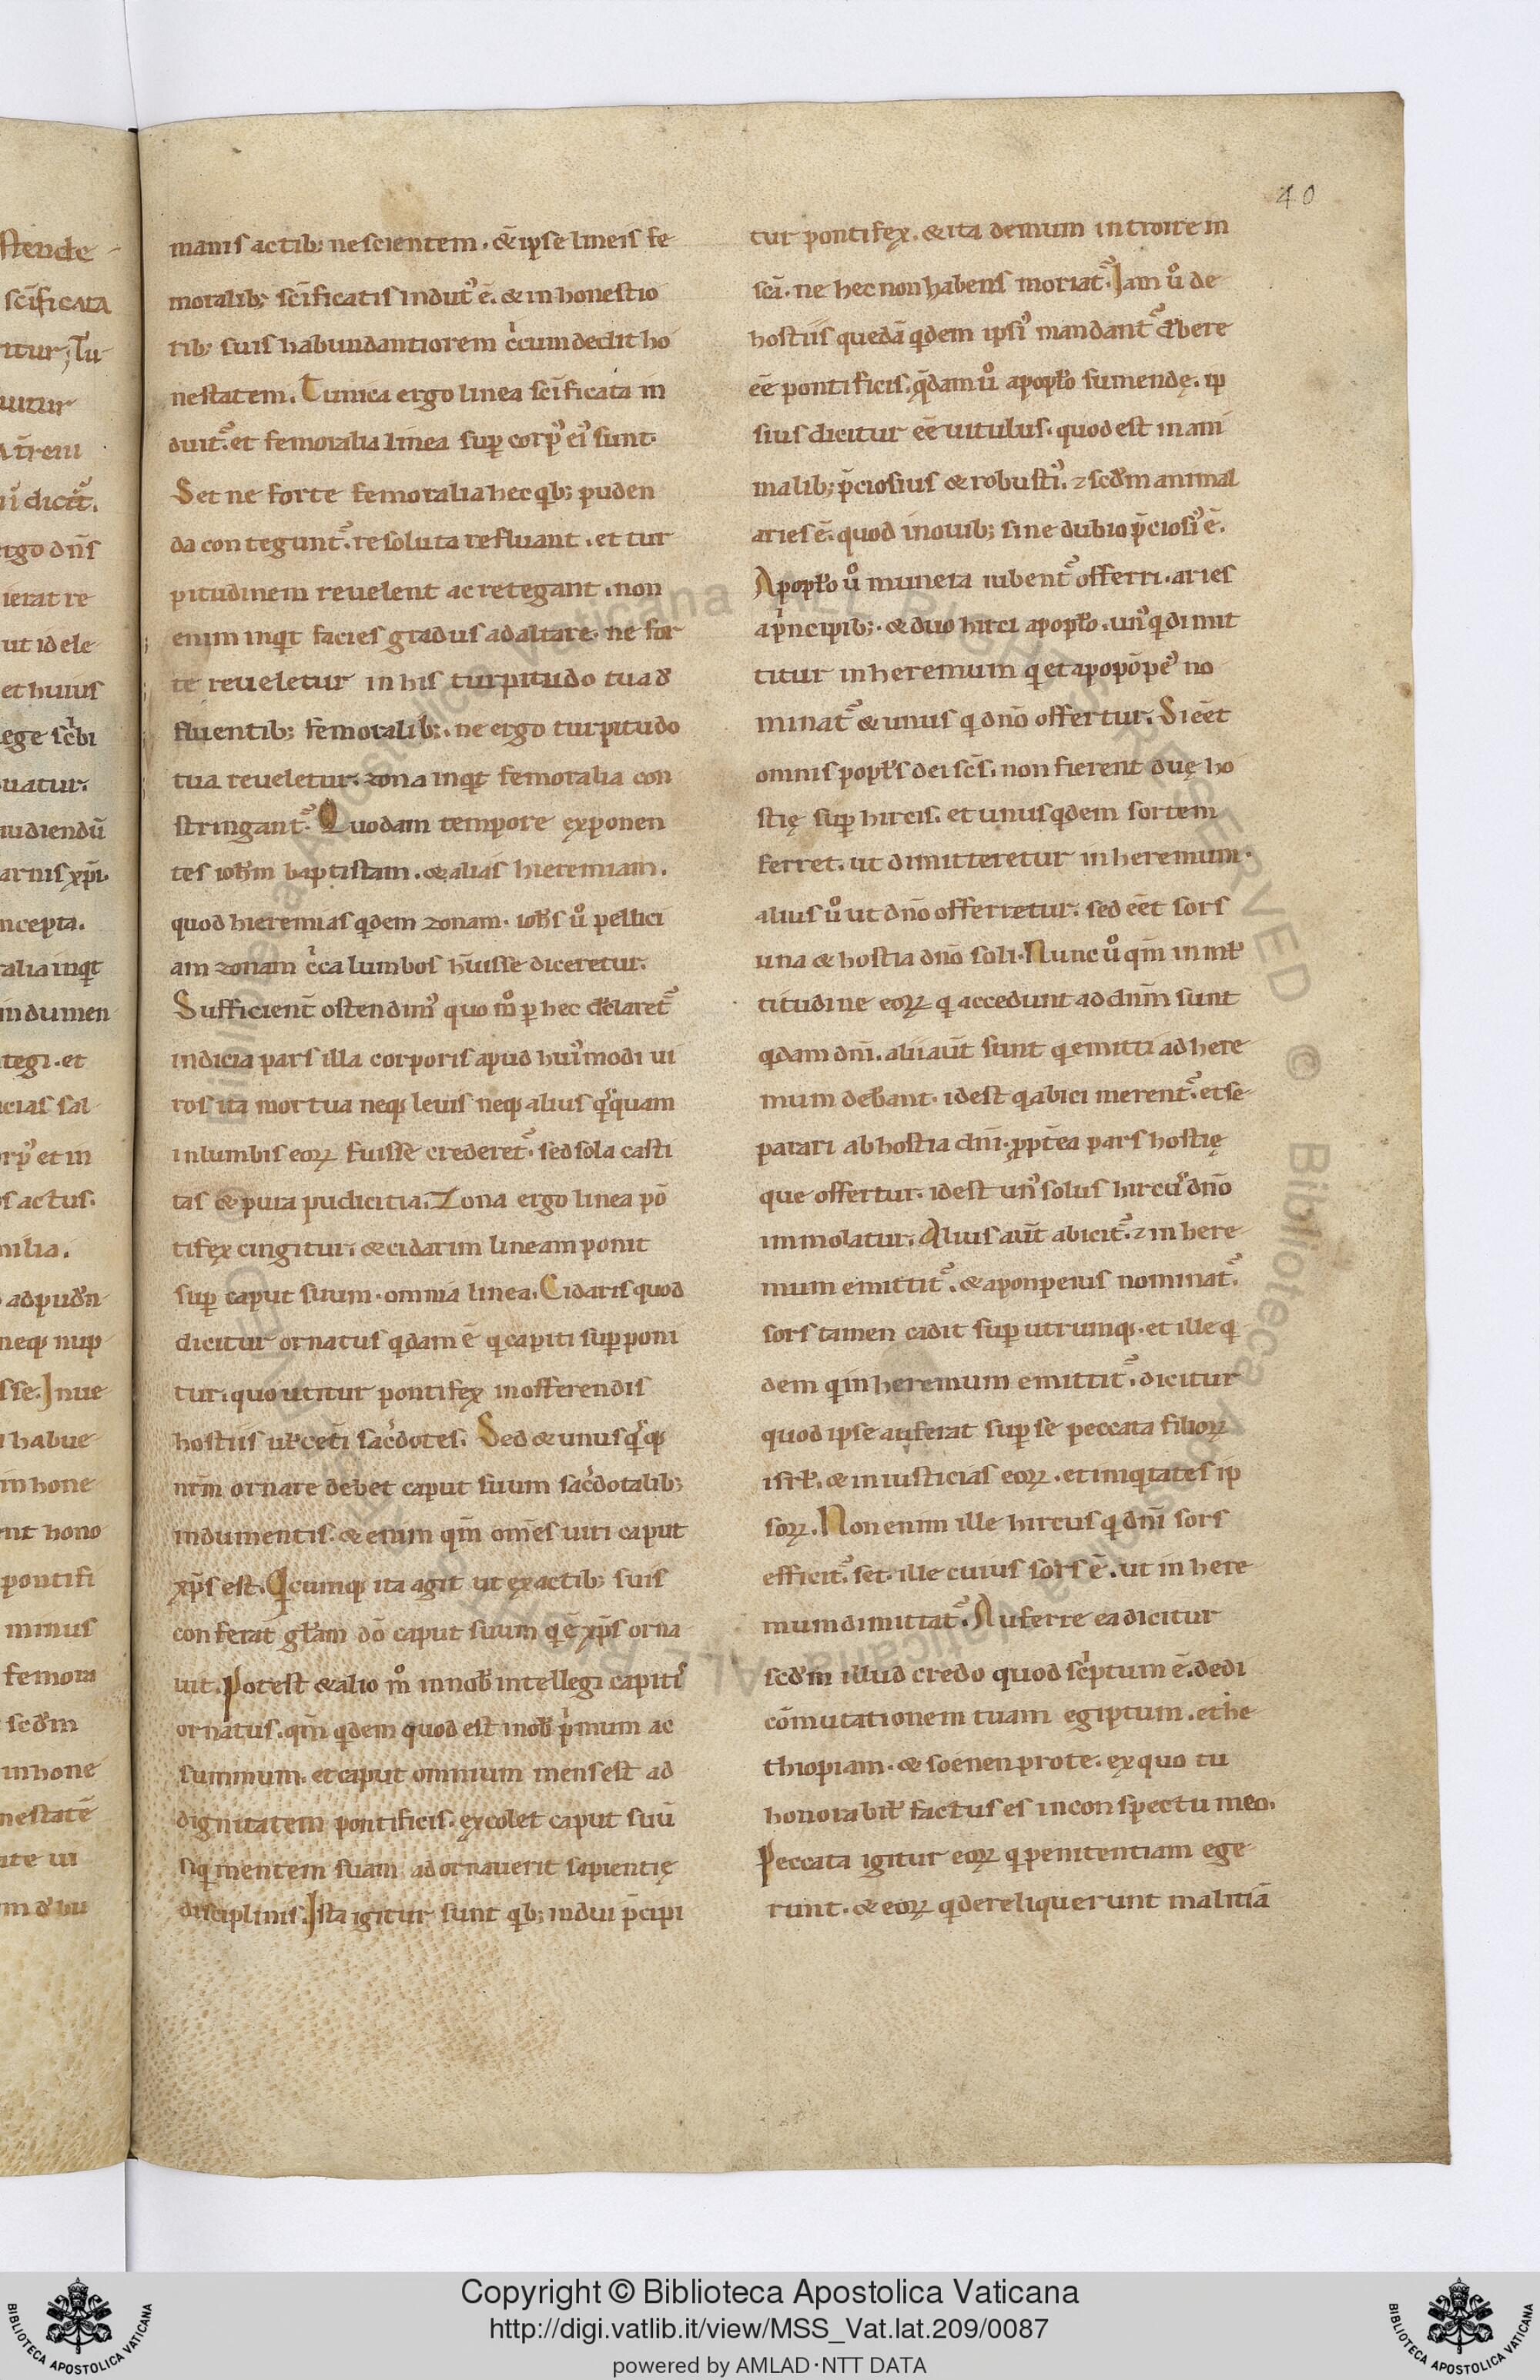 40
manis actib; nescientem. & ipse lineis fe
moralib; scīficatis indut᾽ ē. & in honestio
rib; suis habundantiorem c̓cumdedit ho
nestatem. Tunica ergo linea scīficata in
duit᾽. et femoralia linea sup̱ corp᾽ ei᾽ sunt.
Set ne forte femoralia hec qb; puden
da contegunt᾽. resoluta refluant. et tur
pitudinem reuelent ac retegant. non
enim inqt facies gradus ad altare. ne for
te reueletur in his turpitudo tua d̓
fluentib; femoralib;. ne ergo turpitudo
tua reueletur. zona inqt femoralia con
stringant᾽. Quodam tempore exponen
tes ioh̄m baptistam. & alias hieremiam.
quod hieremias qdem zonam. ioh̄s ů pellici
am zonam c̓ca lumbos h̄uisse diceretur.
Sufficient̄ ostendim᾽ quo m̊ p̱ hec d̓claret᾽
indicia pars illa corporis apud hui᾽modi ui
ros ita mortua neq; leuis neq; alius q̓squam
in lumbis eoꝝ fuisse crederet᾽. sed sola casti
tas & pura pudicitia. Zona ergo linea pō
tifex cingitur. & cidarim lineam ponit
sup̱ caput suum. omnia linea. Cidaris quod
dicitur ornatus qdam ē q capiti sup̱poni
tur. quo utitur pontifex in offerendis
hostiis ul̄ cet̄i sac̓dotes. Sed & unusq̓sq;
nr̄m ornare debet caput suum sac̓dotalib;
indumentis. & enim qm̄ om̄es uiri caput
xp̄s est. Qcumq; ita agit ut ex actib; suis
conferat gl̄am dō caput suum q ē xp̄s orna
uit. Potest & alio m̊ in nob̄ intellegi capiti᾽
ornatus. qm̄ qdem quod est in ob̄ p̓mum ac
summum. et caput omnium mens est ad
dignitatem pontificis. excolet caput suū
siq mentem suam adornauerit sapientię
disciplinis. Ista igitur sunt qb; indui p̄cipi
tur pontifex. & ita demum introire in
scā. ne hec non habens moriat᾽. Iam ů de
hostiis quedā qdem ipsi᾽ mandant᾽ d̓bere
eē pontificis. q̄dam ů a popl̄o sumendę. ip
sius dicitur eē uitulus. quod est in ani
malib; p̄ciosius & robusti᾽. ⁊ scd̄m animal
aries ē. quod in ouib; sine dubio p̄ciosi᾽ ē.
A popl̄o ů munera iubent᾽ offerri. aries
a p̓ncipib;. & duo hirci a popl̄o. un᾽ q dimit
titur in heremum q et apopōpe᾽ no
minat᾽ & unus q dn̄o offertur. Si eēt
omnis popl̄s dei scs̄. non fierent duę ho
stię sup̱ hircis. et unus qdem sortem
ferret. ut dimitteretur in heremum.
alius ů ut dn̄o offerretur. sed eēt sors
una & hostia dn̄o soli. Nunc ů qm̄ in ml̄
titudine eoꝝ q accedunt ad dn̄m sunt
qdam dn̄i. alii aut̄ sunt q emitti ad here
mum deb̄ant. idest q abici merent᾽. et se
parari ab hostia dn̄i. pp̄t̄ea pars hostię
que offertur. idest un᾽ solus hircu᾽ dn̄o
immolatur. Alius aut̄ abicit᾽. ⁊ in here
mum emittit᾽. & aponpeius nominat᾽.
sors tamen cadit sup̱ utrumq;. et ille q
dem q in heremum emittit᾽. dicitur
quod ipse auferat sup̱ se peccata filioꝝ
isrl̄. & iniusticias eoꝝ. et iniqtates ip
soꝝ. Non enim ille hircus q dn̄i sors
efficit᾽. set ille cuius sors ē. ut in here
mum dimittat᾽. Auferre ea dicitur
scd̄m illud credo quod sc̓ptum ē. dedi
cōmutationem tuam egiptum. et he
thiopiam. & soenen pro te. ex quo tu
honorabil̄ factus es in conspectu meo.
Peccata igitur eoꝝ q penitentiam ege
runt. & eoꝝ q dereliquerunt malitiā
Copyright © Biblioteca Apostolica Vaticana
http://digi.vatlib.it/view/MSS_Vat.lat.209/0087
powered by AMLAD·NTT DATA
BIBLIOTECA APOSTOLICA VATICANA
BIBLIOTECA APOSTOLICA VATICANA